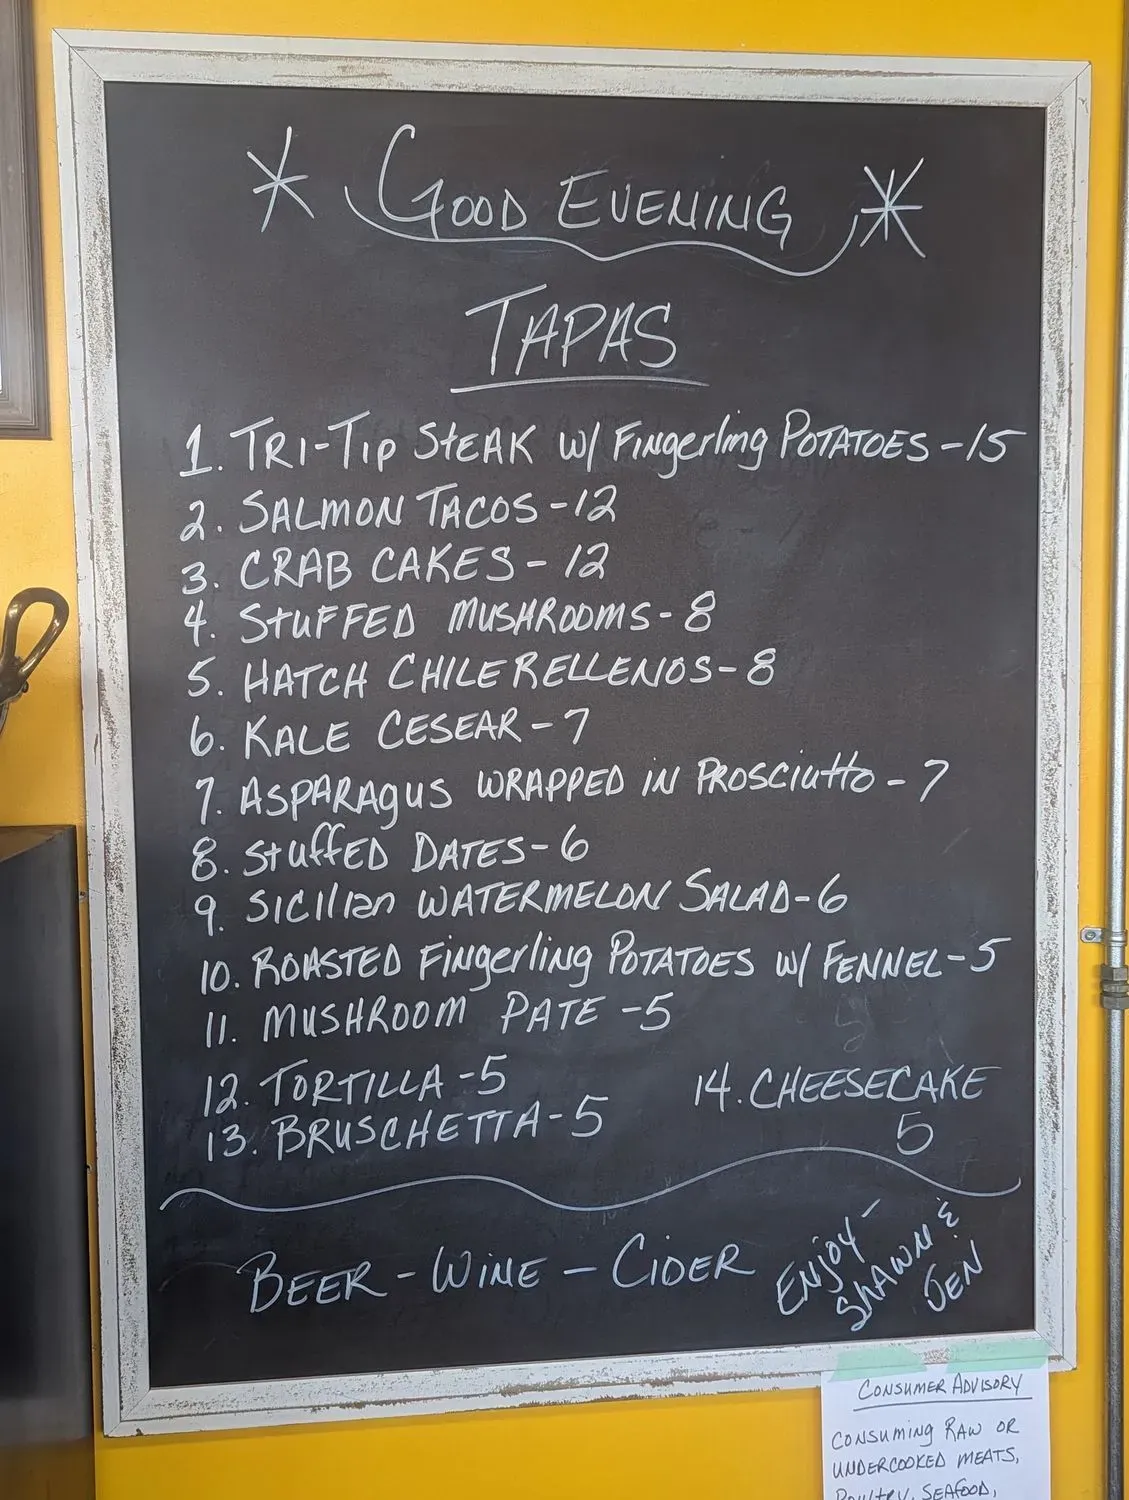 GOOD EVENING
TAPAS
1. TRI-TIP STEAK W/ FINGERLING POTATOES - 15
2. SALMON TACOS - 12
3. CRAB CAKES - 12
4. STUFFED MUSHROOMS - 8
5. HATCH CHILE RELLENOS - 8
6. KALE CESEAR - 7
7. ASPARAGUS WRAPPED IN PROSCIUTTO - 7
8. STUFFED DATES - 6
9. SICILIAN WATERMELON SALAD - 6
10. ROASTED FINGERLING POTATOES W/ FENNEL - 5
11. MUSHROOM PATE - 5
12. TORTILLA - 5
13. BRUSCHETTA - 5
14. CHEESECAKE
5
BEER - WINE - CIDER
ENJOY -
SHAWN &
JEN
CONSUMER ADVISORY
CONSUMING RAW OR
UNDERCOOKED MEATS,
POULTRY, SEAFOOD,